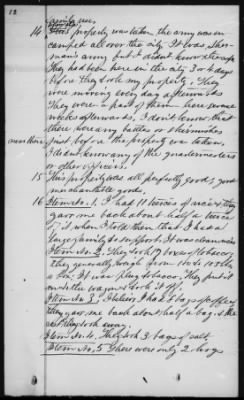 12
family use.
14 When this property was taken the army was en
camped all over the city. It was Sher
man's army but I didn't know the corps.
They had been here in the city 3 or 4 days
before they took my property. They
were moving every day afterwards
They were a part of them here some
weeks afterwards. I don't know that
there were any battles or skirmishes
just before this property was taken.
I didn't know any of the quartermasters
or other officers.
15 This property was all perfectly good, good
merchantable goods.
16 Item No. 1. I had 11 tierces of rice &amp; they
gave me back about half a tierce
of it when I told them that I had a
large family to support. It was clean rice
Item No. 2. They took 19 boxes of tobacco,
they generally weigh from
a box. It was plug tobacco. They put it
into the wagons &amp; took it off.
Item No. 3. I believe I had 4 bags of coffee &amp;
they gave me back about half a bag, &amp; the
rest they took away.
Item No. 4. They took 3 bags of salt.
Item No. 5 There were only 2 bags